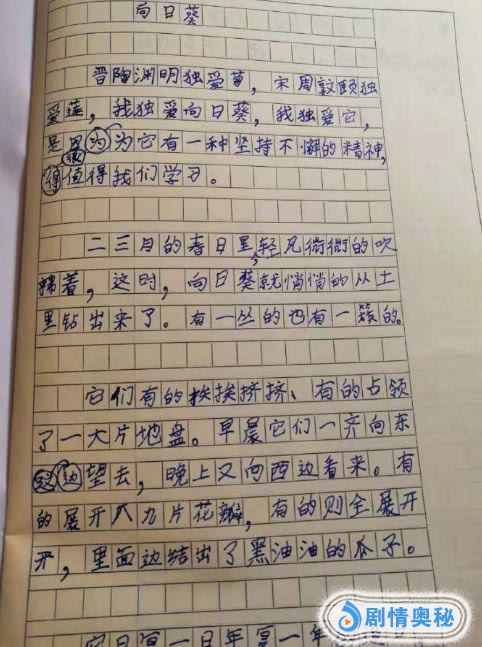 向日葵
晋陶渊明独爱菊，宋周敦颐独
爱莲，我独爱向日葵，我独爱它，
是因为为它有一种坚持不懈的精神，
很值得我们学习。
二三月的春日里，轻风微微的吹
拂着，这时，向日葵就悄悄的从土
里钻出来了。有一丛的也有一簇的。
它们有的挨挨挤挤、有的占领
了一大片地盘。早晨它们一齐向东
边望去，晚上又向西边看来。有
的展开八九片花瓣，有的则全展开
开，里面边结出了黑油油的瓜子。
它日复一日年复一年
剧情奥秘